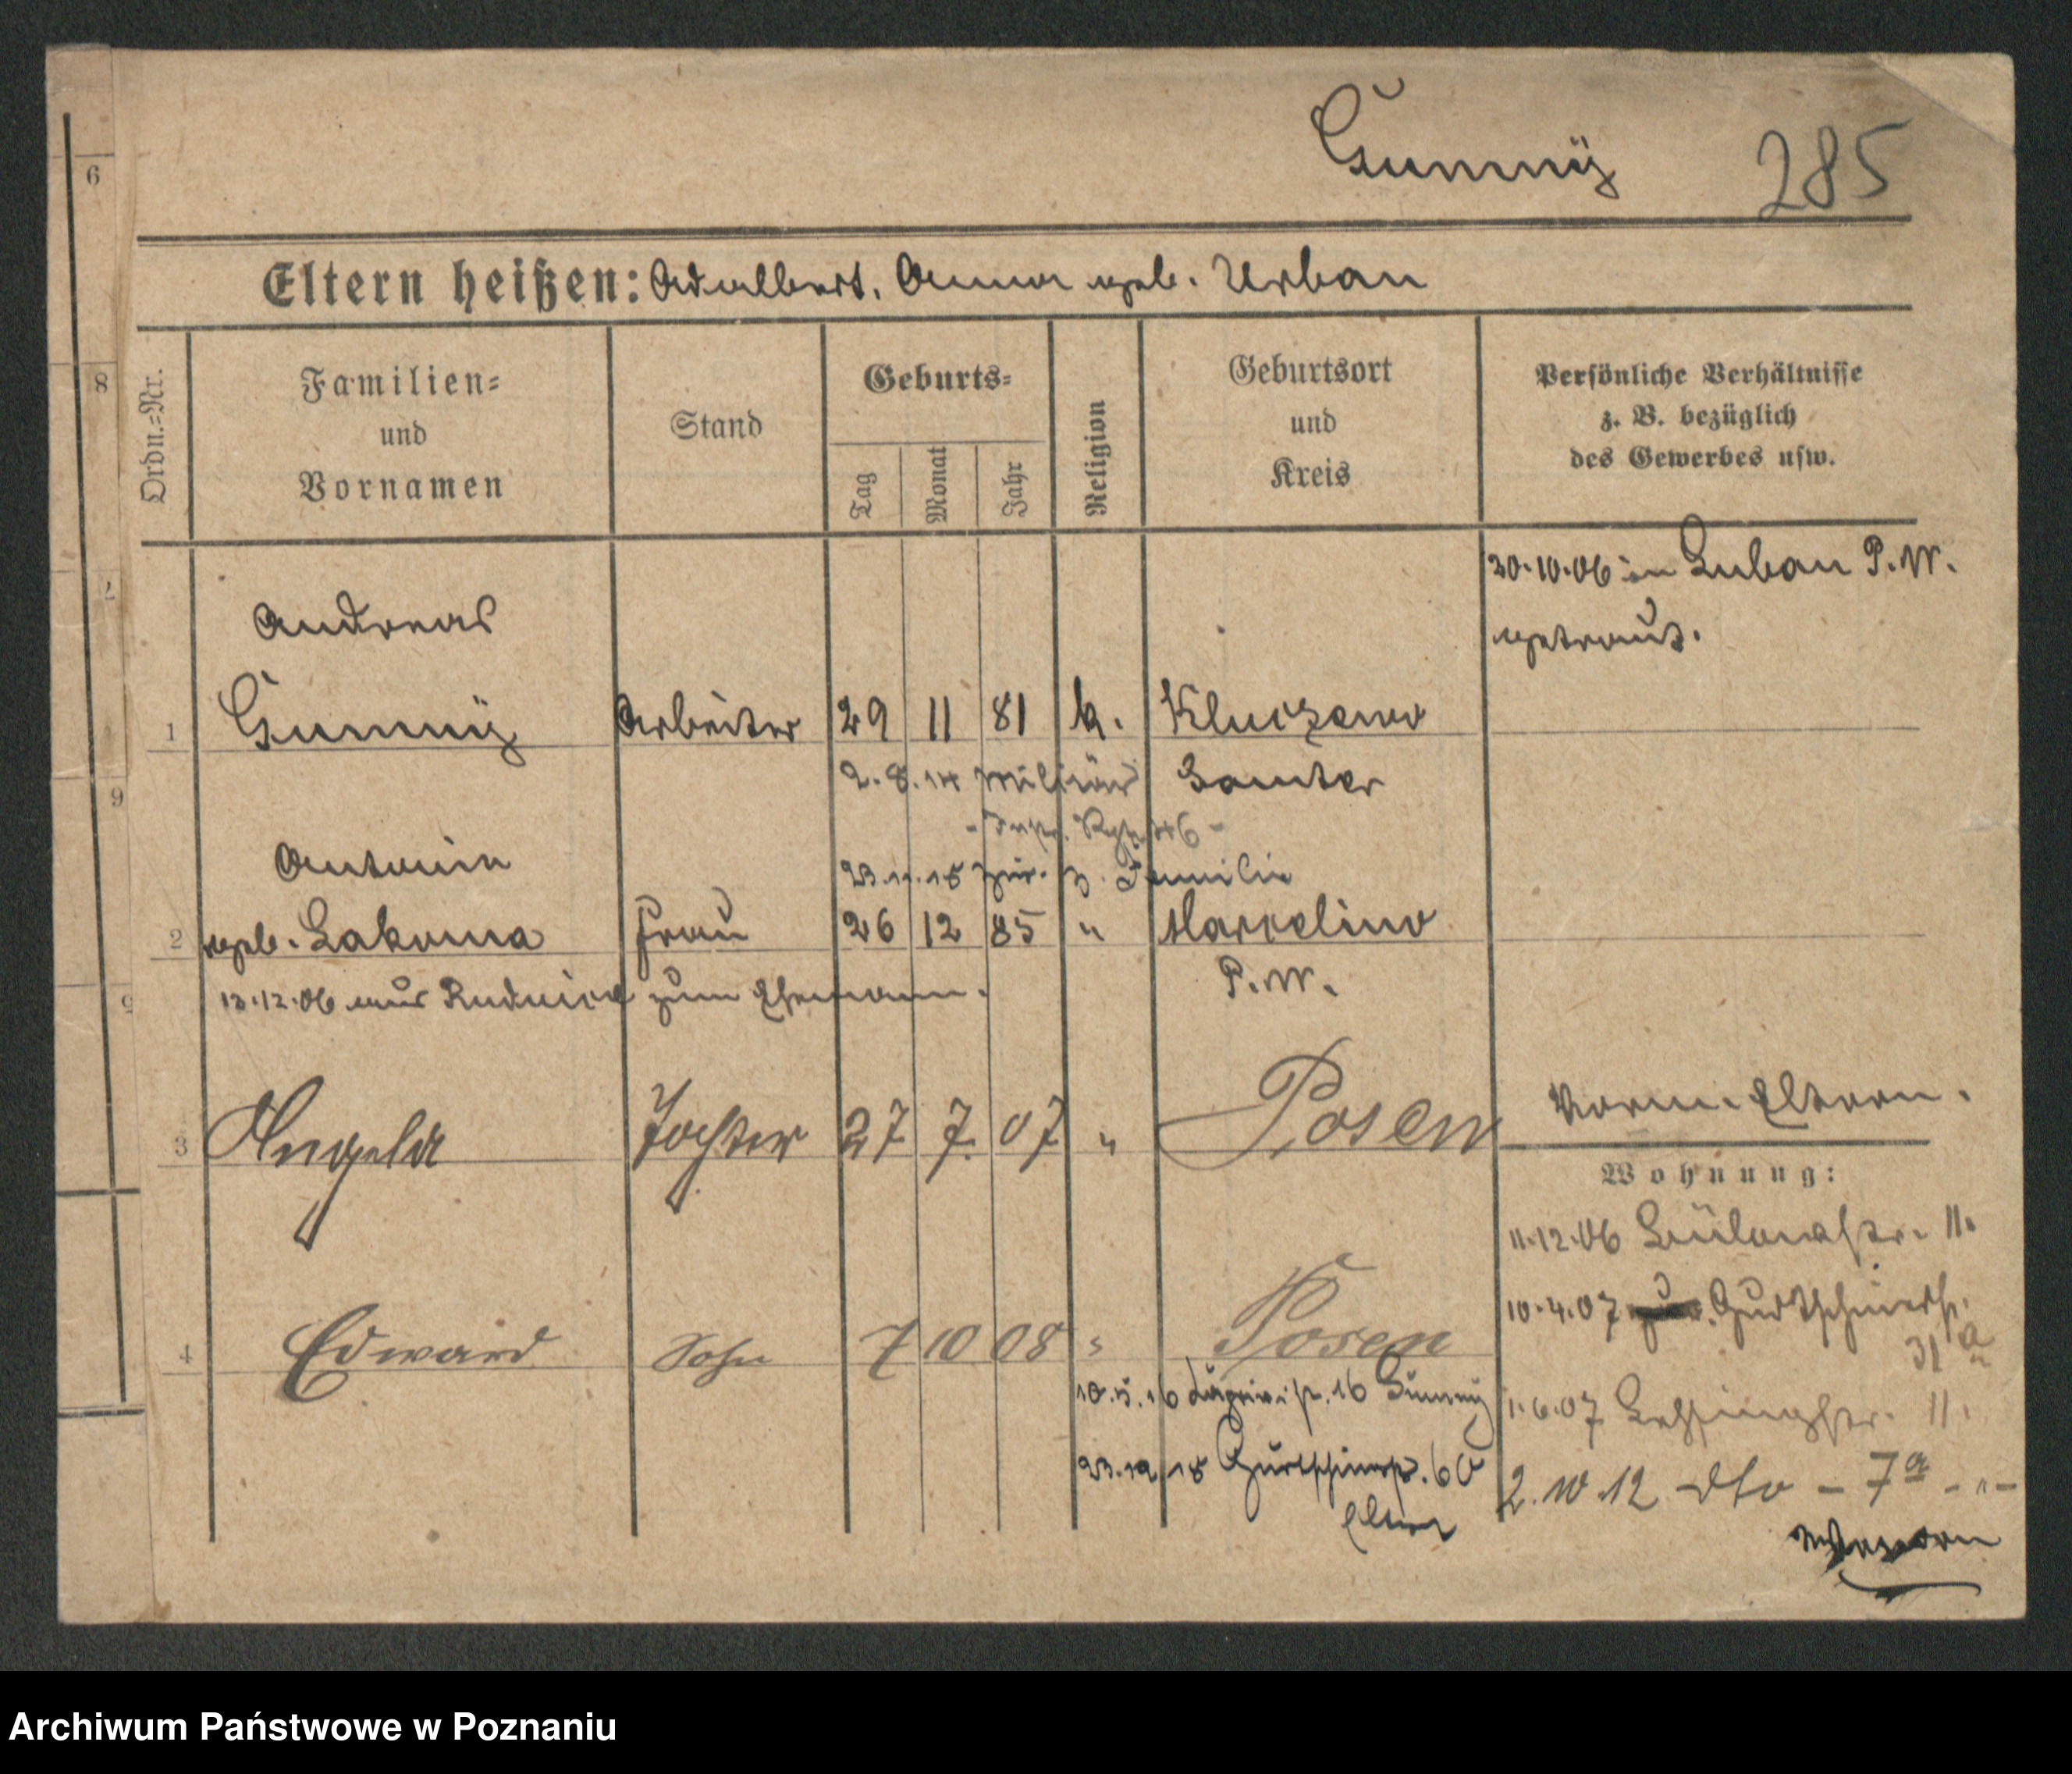 Gumny 285
Eltern heißen: Adalbert, Anna geb. Urban
Ordn.=Nr.
Familien=
und
Vornamen
Stand
Geburts=
Tag
Monat
Jahr
Religion
Geburtsort
und
Kreis
Persönliche Verhältnisse
z. B. bezüglich
des Gewerbes usw.
6
8
9
30.10.06 in Luban P.W.
getraut.
Andreas
1 Gumny Arbeiter 29 11 81 k. Kluczewo
2.8.14 Militär Samter
Inf. Rgt. 46
Antonin
23.11.18 zur. z. Familie
2 geb. Lakoma Frau 26 12 85 " Marcelino
13.12.06 aus Rudnice zum Ehemann. P.W.
3 Angela Tochter 27 7. 07 " Posen
Vorm. Eltern.
Wohnung:
11.12.06 Bülowstr. 11.
10.4.07 Gurtschinerstr.
31a
4 Edward Sohn 7 10 08 " Posen
10.5.16 16 Gumny
1.6.07 Lessingstr. 11.
23.12.18 Gurtschinerstr. 60
Eltern
2.10.12 - dto - 7a - " -
Archiwum Państwowe w Poznaniu